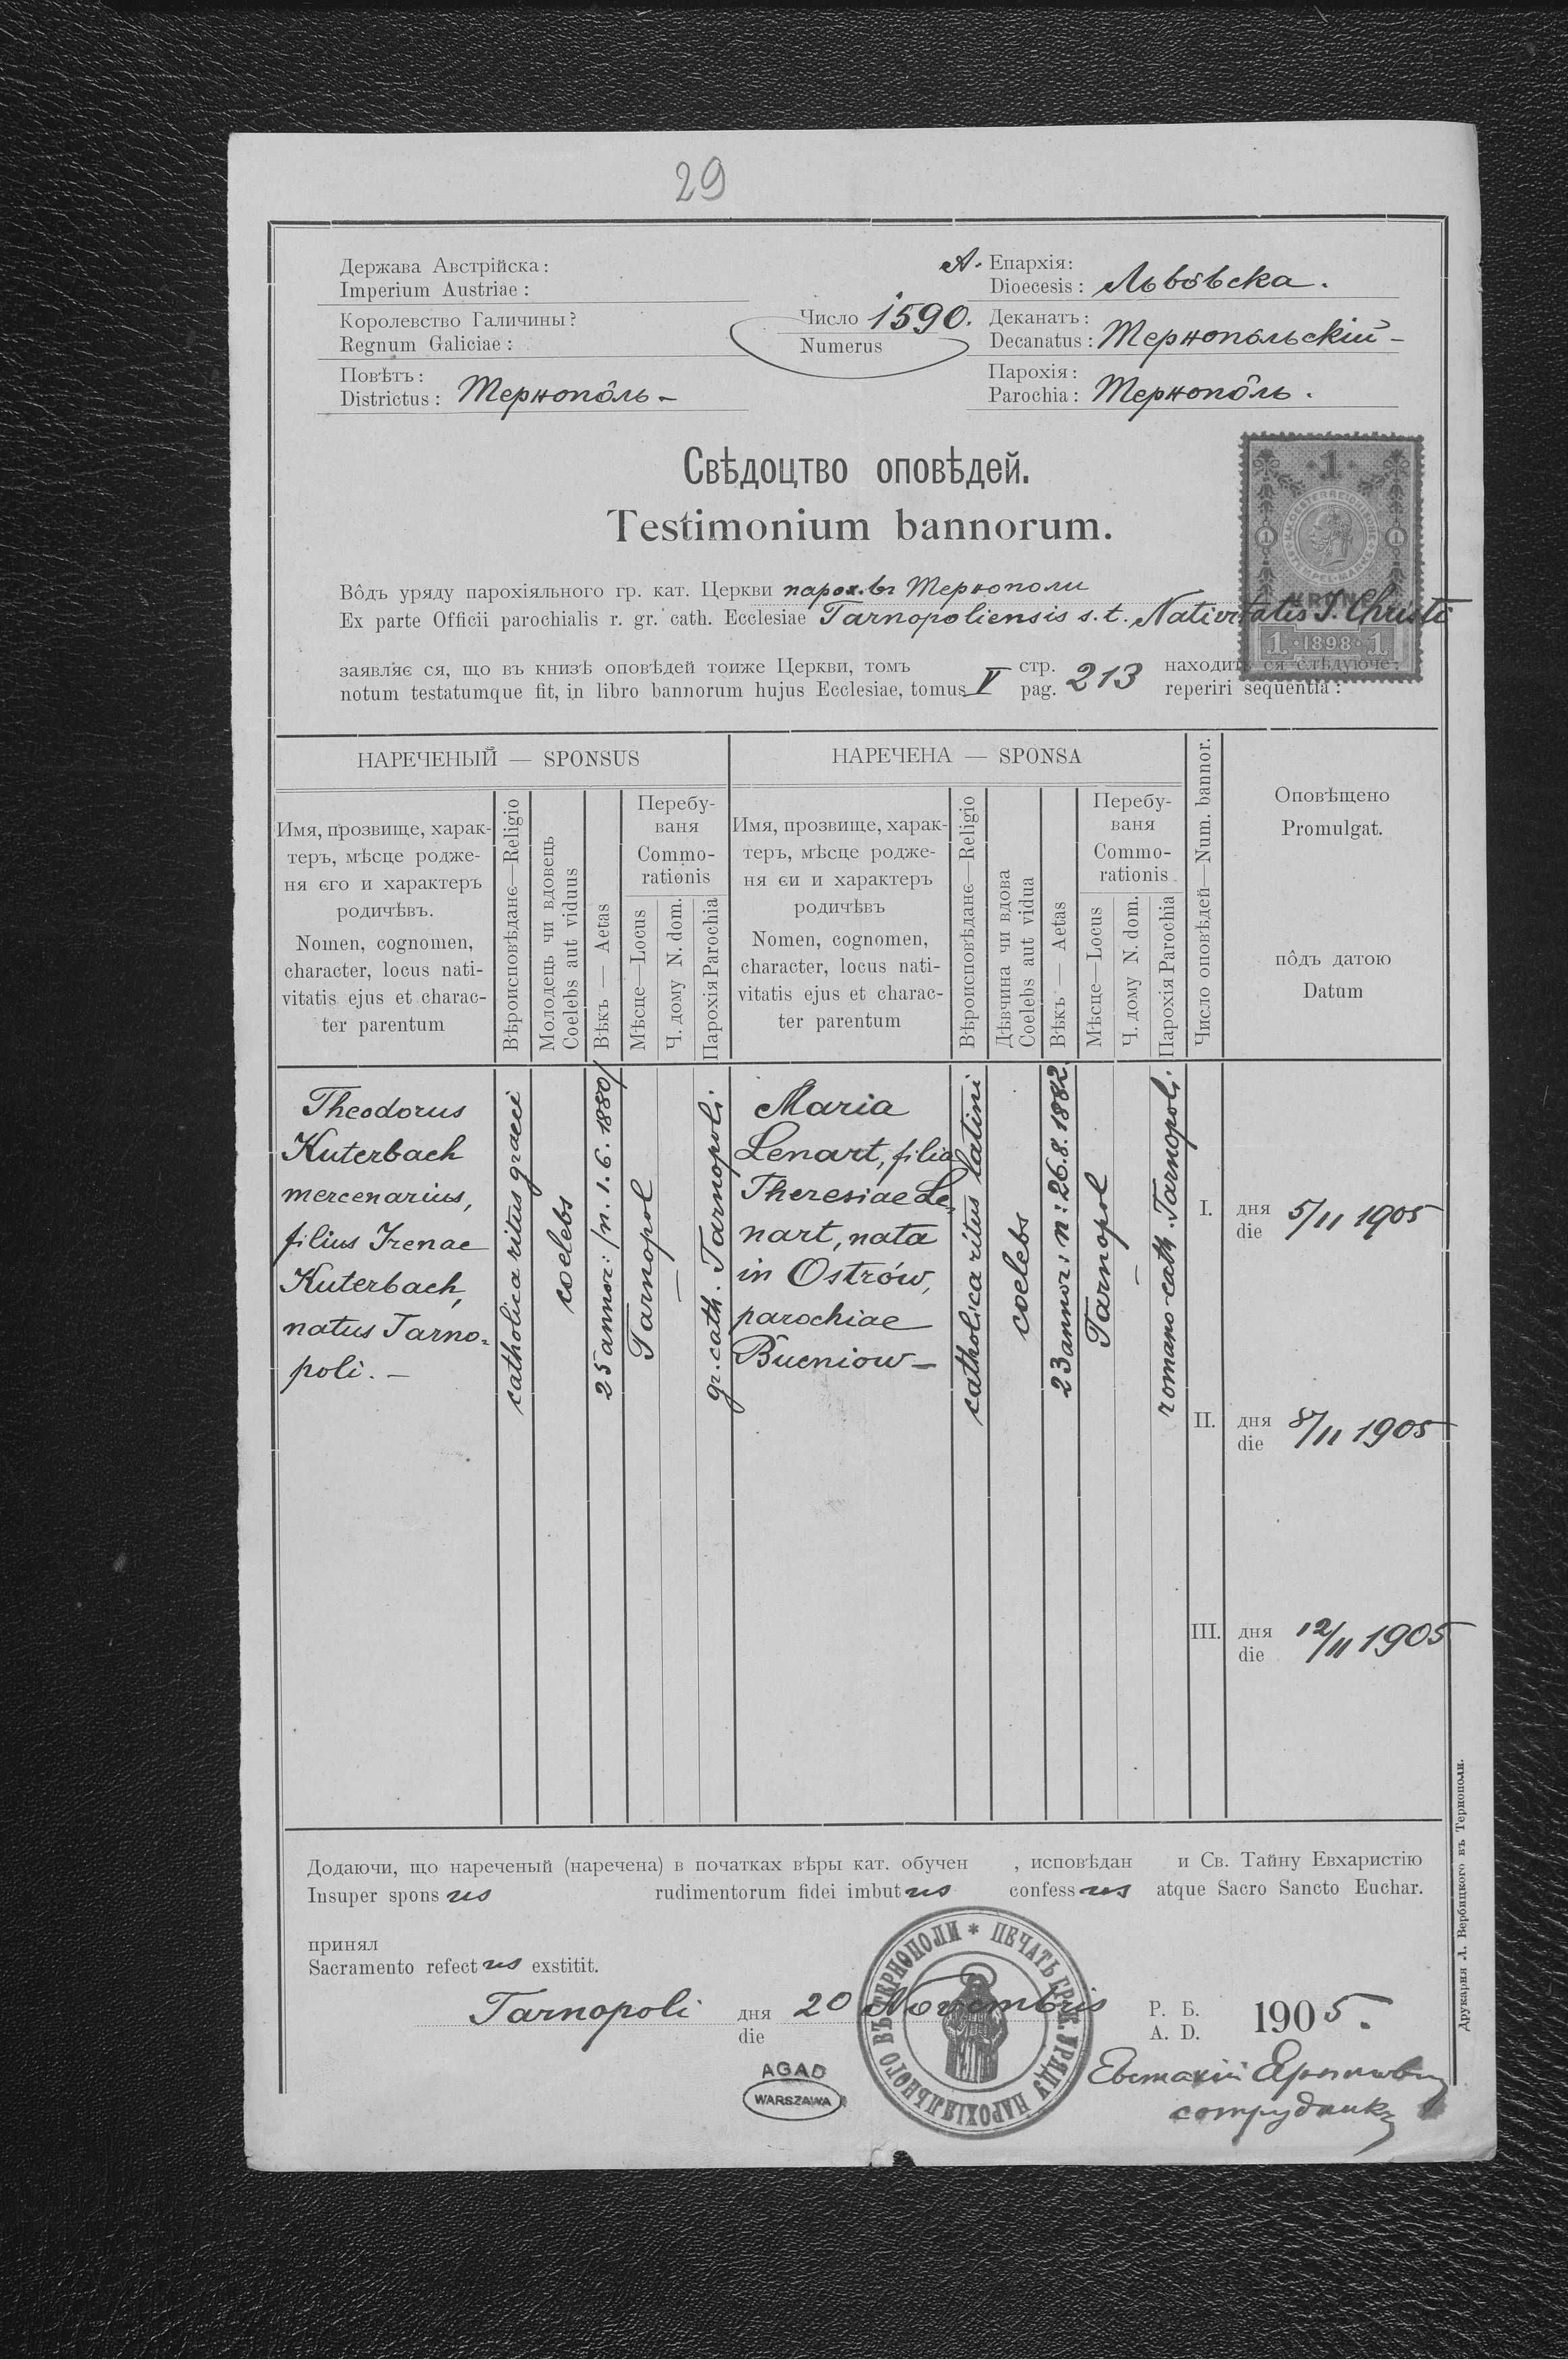 29
Держава Австрійска:
Imperium Austriae:
Королевство Галичины?
Regnum Galiciae:
Повѣтъ:
Districtus: Тернопôль -
Число 1590.
Numerus
А. Епархія:
Dioecesis: Львôвска.
Деканатъ:
Decanatus: Тернопôльскій -
Парохія:
Parochia: Тернопôль.
Свѣдоцтво оповѣдей.
Testimonium bannorum.
1
1 1
KRONE
1 · 1898 · 1
Вôдъ уряду парохіяльного гр. кат. Церкви парох. въ Тернополи
Ex parte Officii parochialis r. gr. cath. Ecclesiae Tarnopoliensis s. t. Nativitatis J. Christi
заявляє ся, що въ книзѣ оповѣдей тоиже Церкви, томъ стр. находить ся слѣдуюче:
notum testatumque fit, in libro bannorum hujus Ecclesiae, tomus V pag. 213 reperiri sequentia:
НАРЕЧЕНЫЙ — SPONSUS
Имя, прозвище, харак-
теръ, мѣсце родже-
ня єго и характеръ
родичѣвъ.
Nomen, cognomen,
character, locus nati-
vitatis ejus et charac-
ter parentum
Вѣроисповѣданє—Religio
Молодець чи вдовець
Coelebs aut viduus
Вѣкъ — Aetas
Перебу-
ваня
Commo-
rationis
Мѣсце—Locus
Ч. дому N. dom.
Парохія Parochia
НАРЕЧЕНА — SPONSA
Имя, прозвище, харак-
теръ, мѣсце родже-
ня єи и характеръ
родичѣвъ
Nomen, cognomen,
character, locus nati-
vitatis ejus et charac-
ter parentum
Вѣроисповѣданє—Religio
Дѣвчина чи вдова
Coelebs aut vidua
Вѣкъ — Aetas
Перебу-
ваня
Commo-
rationis.
Мѣсце—Locus
Ч. дому N. dom.
Парохія Parochia
Число оповѣдей—Num. bannor.
Оповѣщено
Promulgat.
пôдъ датою
Datum
Theodorus
Kuterbach
mercenarius,
filius Irenae
Kuterbach,
natus Tarno-
poli. -
catholica ritus graeci
coelebs
25 annor: /n. 1. 6. 1880/
Tarnopol
—
gr. cath. Tarnopoli
Maria
Lenart, filia
Theresiae Le-
nart, nata
in Ostrów,
parochiae
Bucniow -
catholica ritus latini
coelebs
23 annor: n: 26. 8. 1882.
Tarnopol
—
romano-cath. Tarnopoli
I. дня
die 5/11 1905
II. дня
die 8/11 1905
III. дня
die 12/11 1905
Додаючи, що нареченый (наречена) в початках вѣры кат. обучен , исповѣдан и Св. Тайну Евхаристію
Insuper spons us rudimentorum fidei imbut us confess us atque Sacro Sancto Euchar.
принял
Sacramento refect us exstitit.
Tarnopoli дня 20 Novembris Р. Б. 1905.
die A. D.
ПЕЧАТЬ ГР. К. УРЯДУ ПАРОХІЯЛЬНОГО ВЪ ТЕРНОПОЛИ *
AGAD
WARSZAWA
сотрудникъ
Друкарня Л. Вербицкого въ Тернополи.